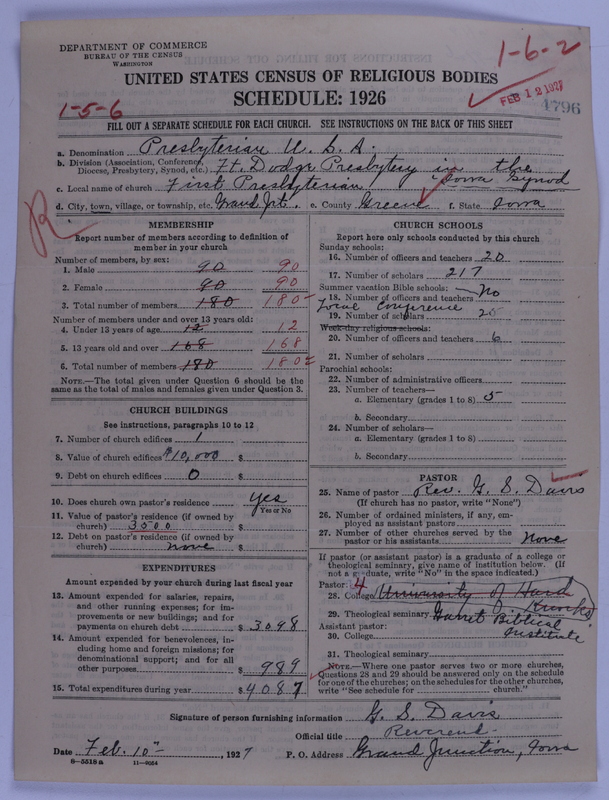 DEPARTMENT OF COMMERCE
BUREAU OF THE CENSUS
WASHINGTON
1-6-2
UNITED STATES CENSUS OF RELIGIOUS BODIES
SCHEDULE: 1926
FEB 12 1927
4796
1-5-6
FILL OUT A SEPARATE SCHEDULE FOR EACH CHURCH. SEE INSTRUCTIONS ON THE BACK OF THIS SHEET
a. Denomination Presbyterian U. S. A.
b. Division (Association, Conference, Diocese, Presbytery, Synod, etc.) Ft. Dodge Presbytery in the Iowa Synod
c. Local name of church First Presbyterian
d. City, town, village, or township, etc. Grand Jct. e. County Greene f. State Iowa
R
MEMBERSHIP
Report number of members according to definition of
member in your church
Number of members, by sex:
1. Male 90 90
2. Female 90 90
3. Total number of members 180 180
Number of members under and over 13 years old:
4. Under 13 years of age 12 12
5. 13 years old and over 168 168
6. Total number of members 180 180
NOTE.—The total given under Question 6 should be the
same as the total of males and females given under Question 3.
CHURCH BUILDINGS
See instructions, paragraphs 10 to 12
7. Number of church edifices 1
8. Value of church edifices $10,000 $
9. Debt on church edifices 0 $
10. Does church own pastor's residence Yes
Yes or No
11. Value of pastor's residence (if owned by
church) 3500 $
12. Debt on pastor's residence (if owned by
church) none $
EXPENDITURES
Amount expended by your church during last fiscal year
13. Amount expended for salaries, repairs,
and other running expenses; for im-
provements or new buildings; and for
payments on church debt $ 3098
14. Amount expended for benevolences, in-
cluding home and foreign missions; for
denominational support; and for all
other purposes $ 989
15. Total expenditures during year $ 4087
CHURCH SCHOOLS
Report here only schools conducted by this church
Sunday schools:
16. Number of officers and teachers 20
17. Number of scholars 217
Summer vacation Bible schools: No
18. Number of officers and teachers
Local Conference
19. Number of scholars 25
Week-day religious schools:
20. Number of officers and teachers 6
21. Number of scholars
Parochial schools:
22. Number of administrative officers
23. Number of teachers—
a. Elementary (grades 1 to 8) 5
b. Secondary
24. Number of scholars—
a. Elementary (grades 1 to 8)
b. Secondary
PASTOR
25. Name of pastor Rev. G. S. Davis
(If church has no pastor, write "None")
26. Number of ordained ministers, if any, em-
ployed as assistant pastors
27. Number of other churches served by the
pastor or his assistants None
If pastor (or assistant pastor) is a graduate of a college or
theological seminary, give name of institution below. (If
not a graduate, write "No" in the space indicated.)
Pastor: 4
28. College University of Hard Knocks
29. Theological seminary Garret Biblical Institute
Assistant pastor:
30. College
31. Theological seminary
NOTE.—Where one pastor serves two or more churches,
Questions 28 and 29 should be answered only on the schedule
for one of the churches; on the schedules for the other churches,
write "See schedule for church."
Signature of person furnishing information G. S. Davis
Official title Reverend
Date Feb. 10th, 1927 P. O. Address Grand Junction, Iowa
8—5518a 11—9554